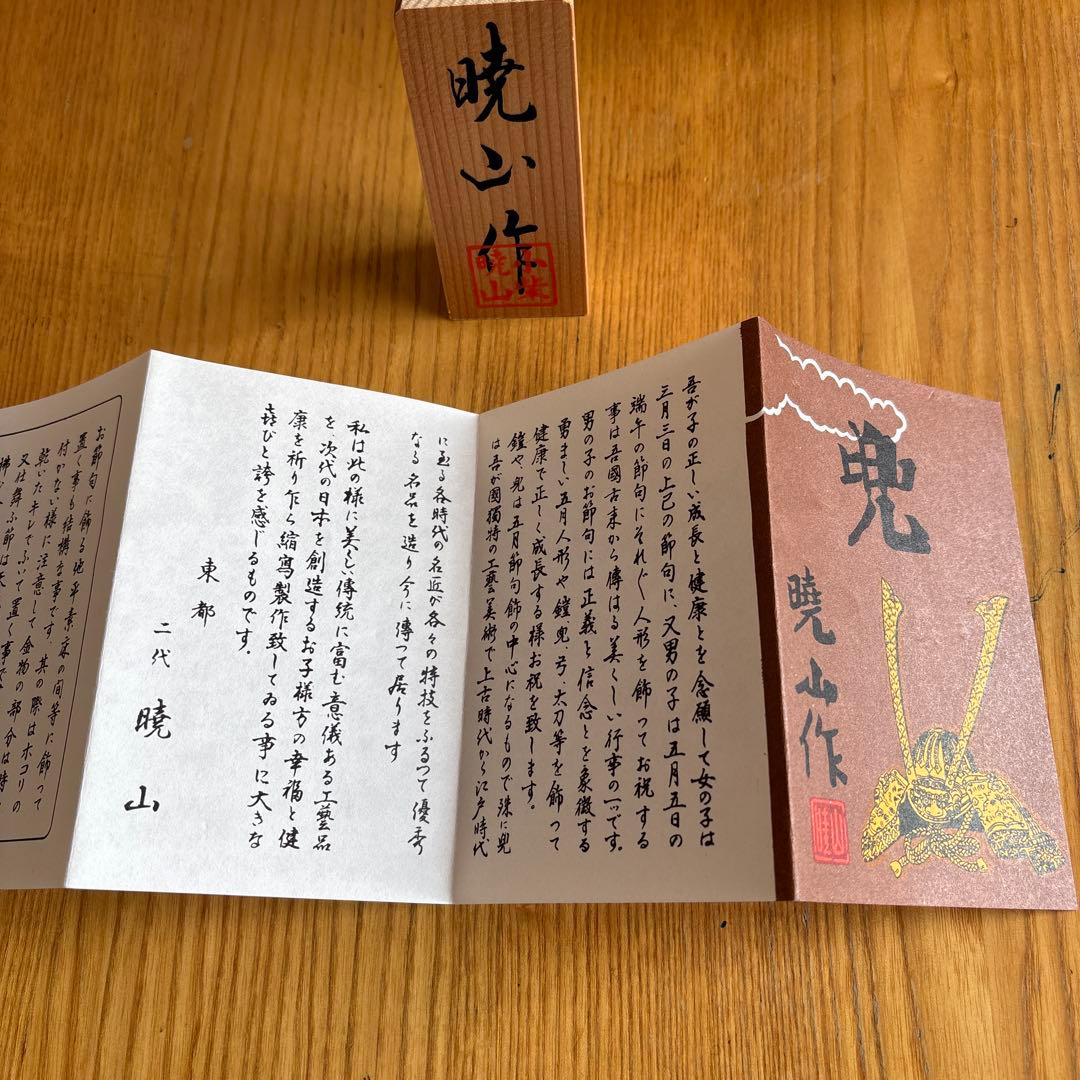 暁山作
小米
暁山
兜
暁山作
吾が子の正しい成長と健康とを念願して女の子は
三月三日の上巳の節句に、又男の子は五月五日の
端午の節句にそれぞれ人形を飾つてお祝する
事は吾國古来から傳はる美くしい行事の一つです。
男の子のお節句には正義と信念とを象徴する
勇ましい五月人形や鎧、兜、弓、太刀等を飾って
健康で正しく成長する様お祝を致します。
鎧や、兜は五月節句飾の中心になるもので殊に兜
は吾が國獨特の工藝美術で上古時代から江戸時代
に至る各時代の名匠が各々の特技をふるつて優秀
なる名品を造り今に傳つて居ります
私は此の様に美くしい傳統に富む意儀ある工藝品
を次代の日本を創造するお子様方の幸福と健
康を祈り乍ら縮寫製作致してゐる事に大きな
喜びと誇を感じるものです。
東都
二代 暁山
お節句に飾る地平素、床の間等に飾って
置く事も結構な事です。其の際はホコリの
付かない様に注意して金物の部分は時々
乾いたキレでふいて置く事で
又仕舞ふ節は